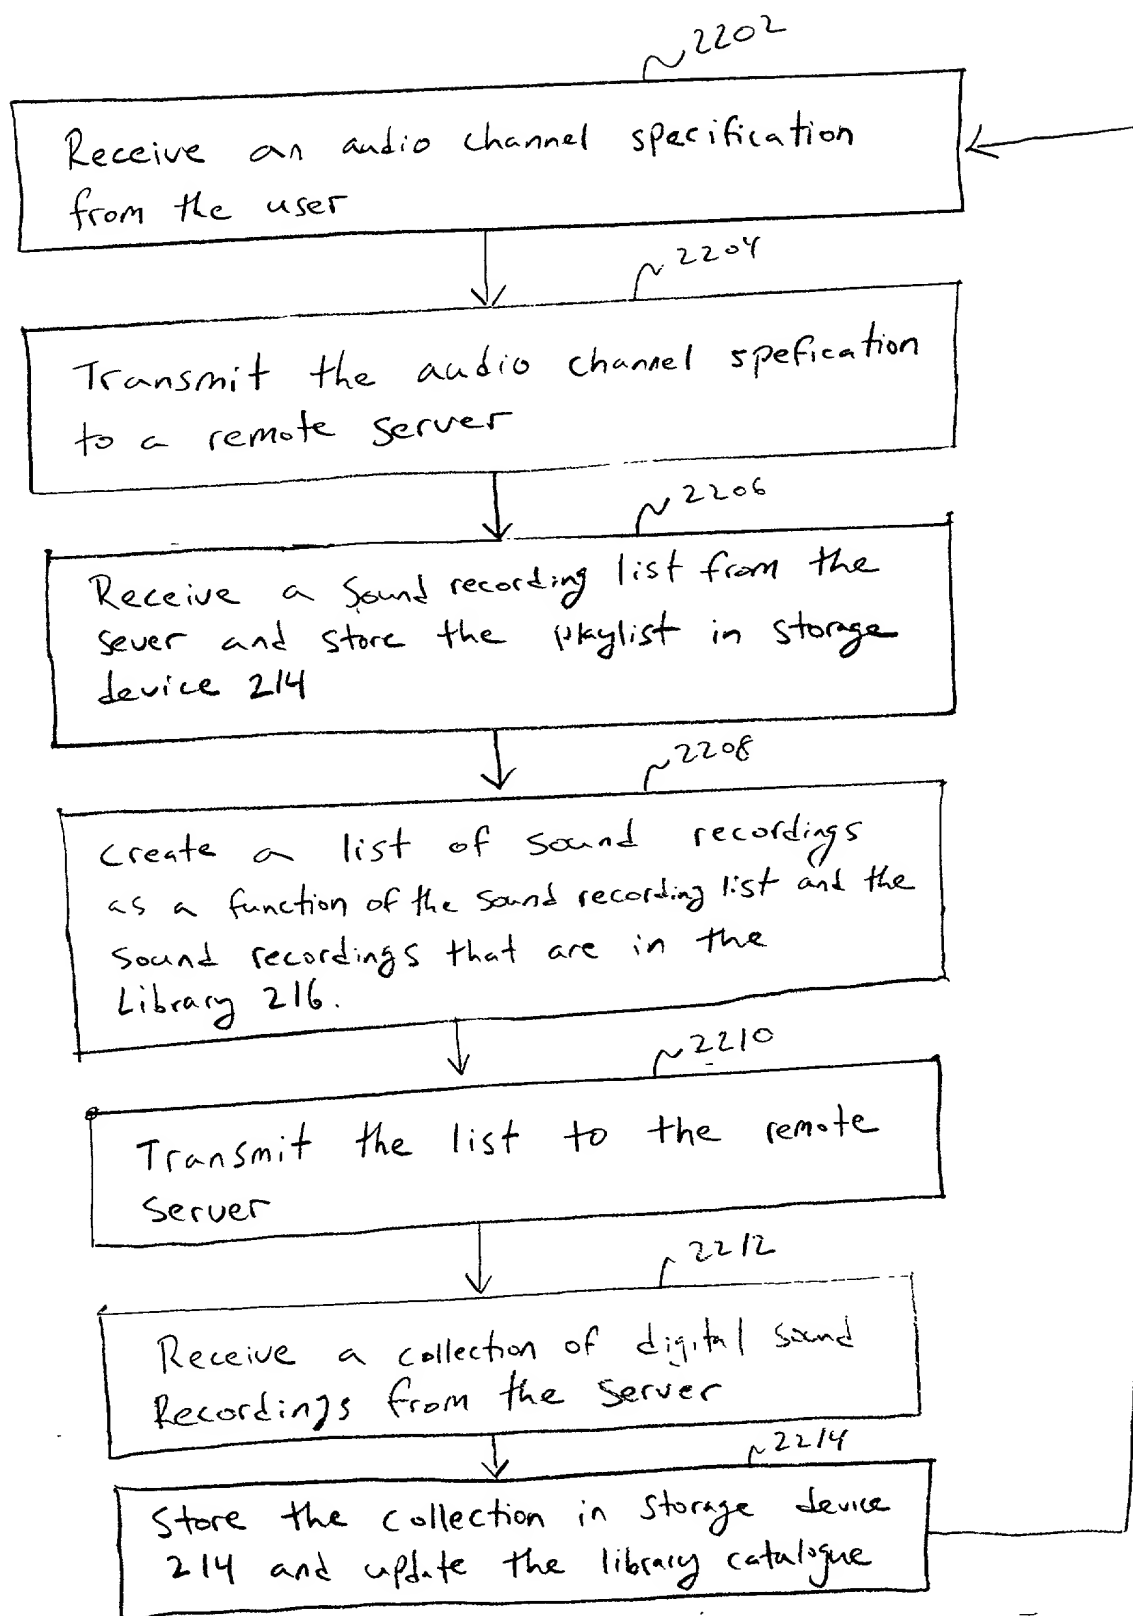 2202
Receive an audio channel specification
from the user
2204
Transmit the audio channel spefication
to a remote server
2206
Receive a Sound recording list from the
sever and store the playlist in storage
device 214
2208
Create a list of sound recordings
as a function of the sound recording list and the
sound recordings that are in the
Library 216.
2210
Transmit the list to the remote
Server
2212
Receive a collection of digital sound
Recordings from the Server
2214
Store the collection in storage device
214 and update the library catalogue